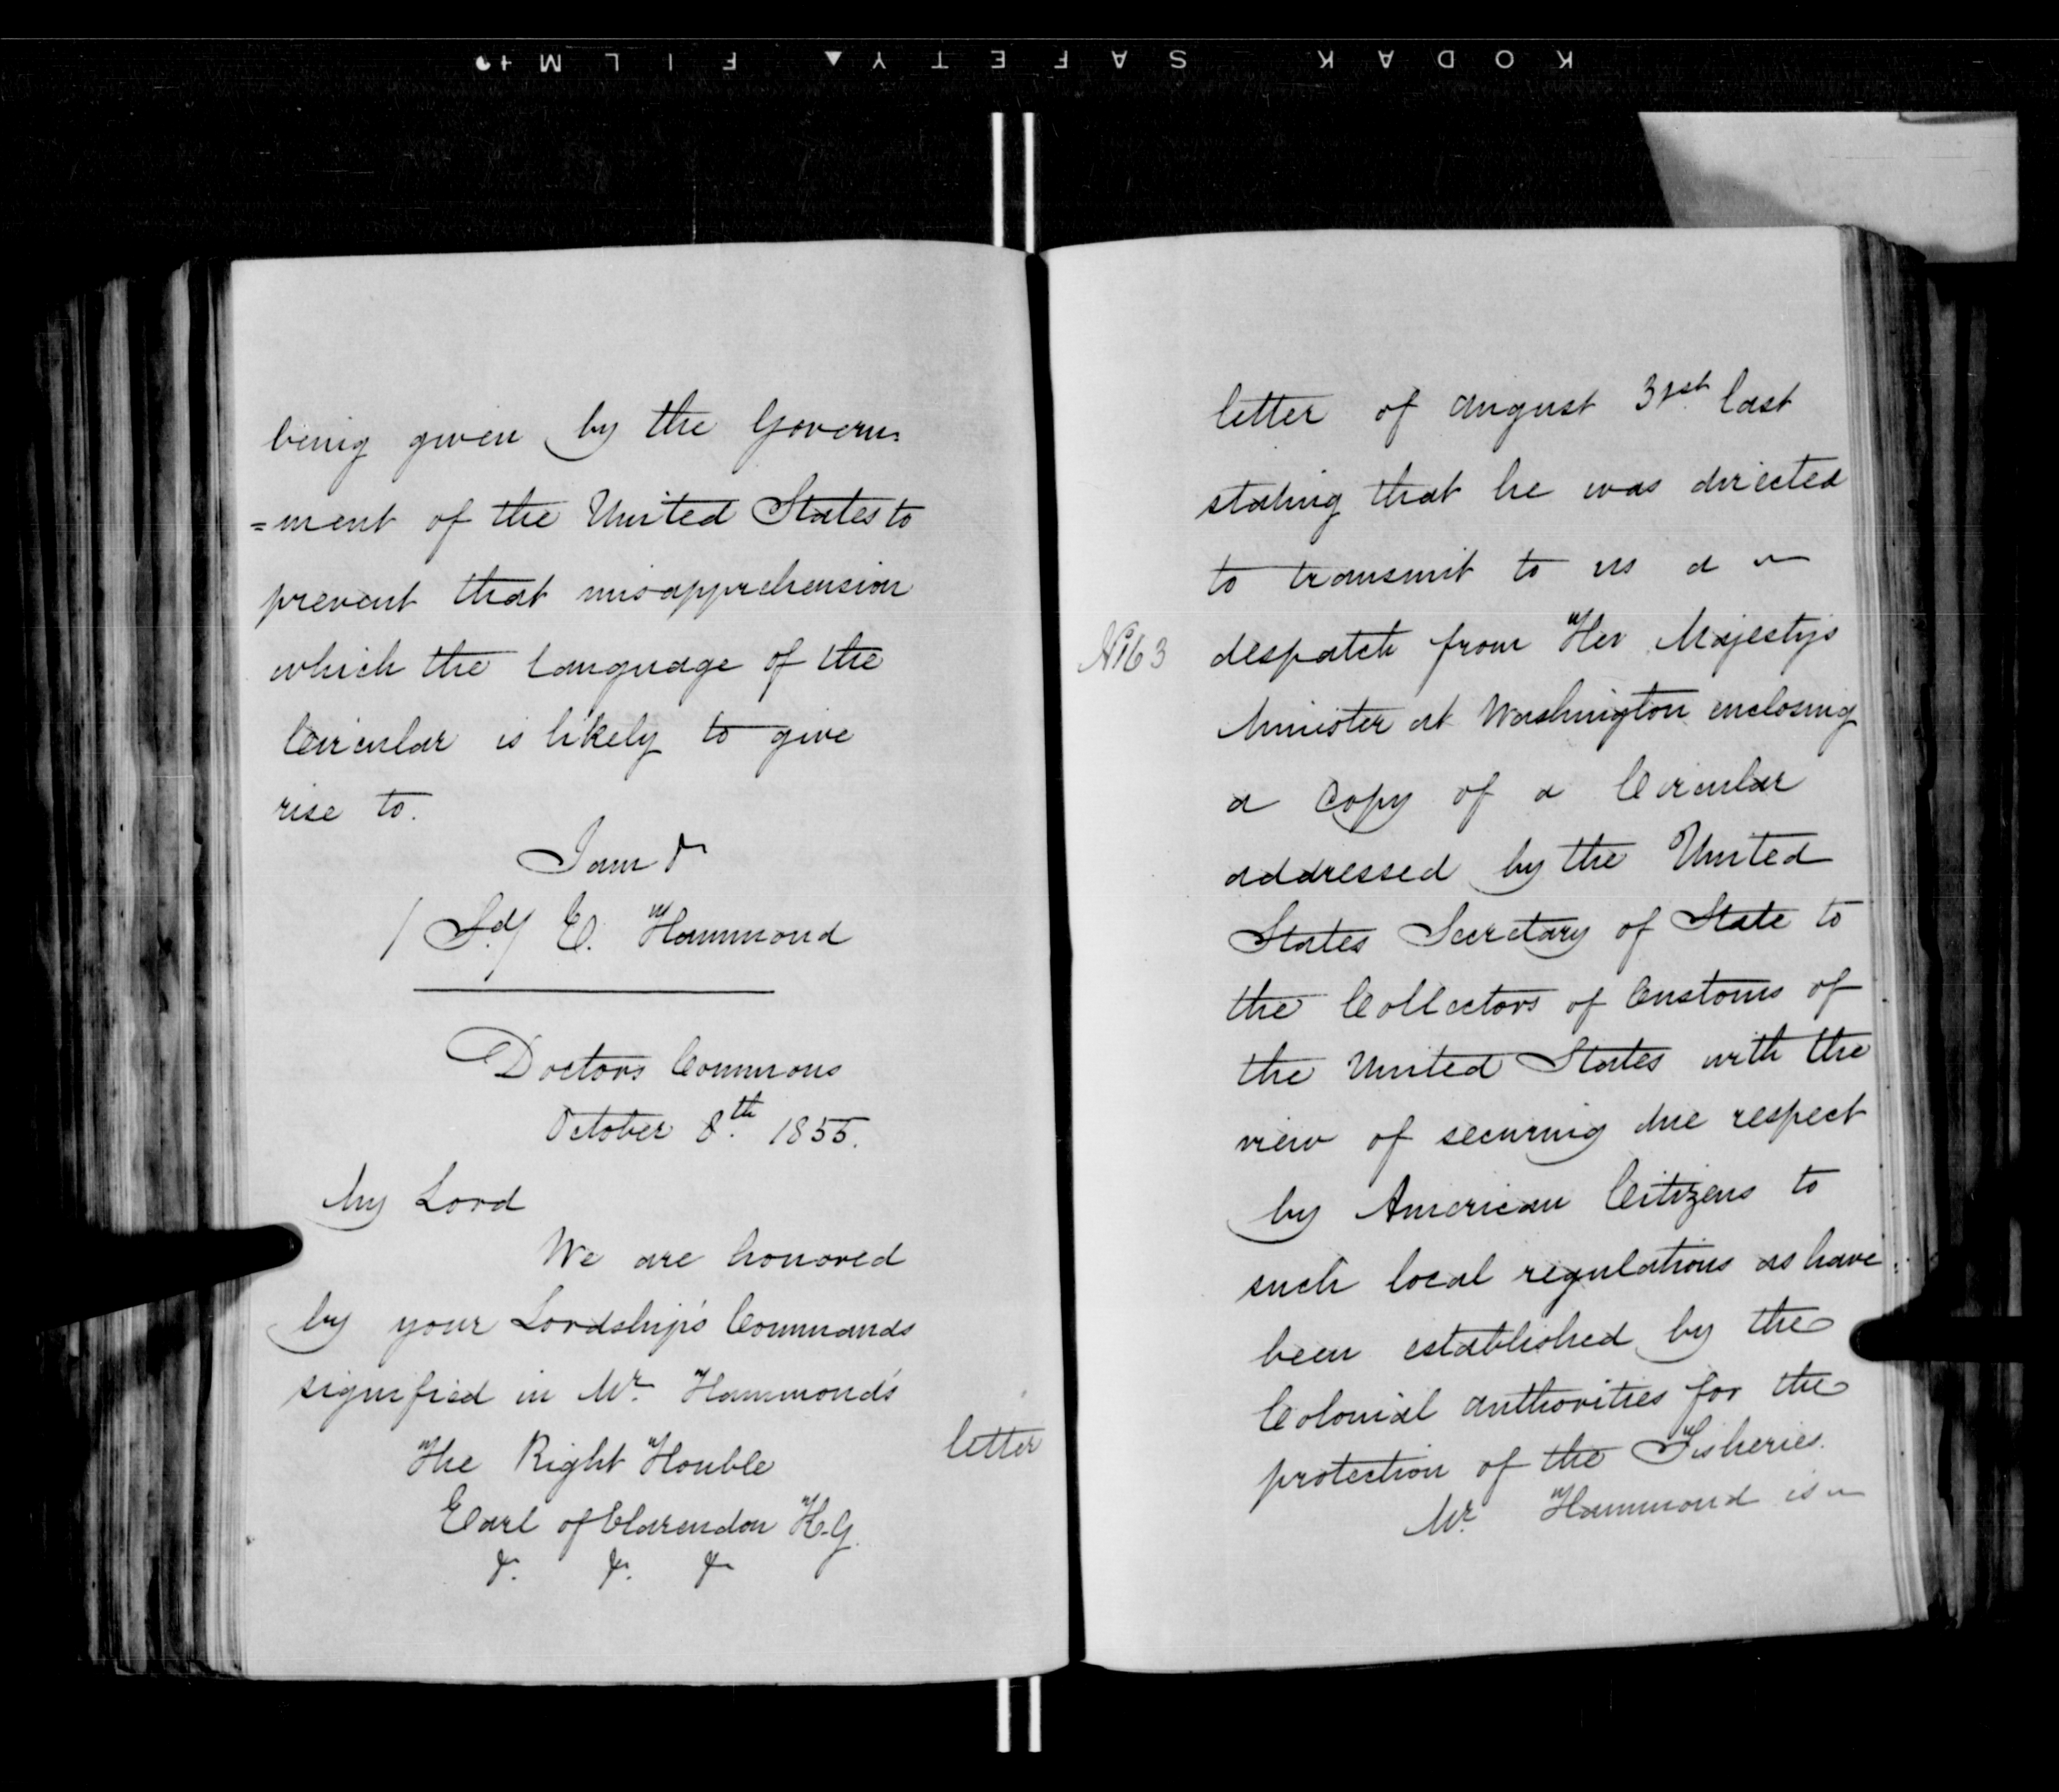 KODAK SAFETY▲ FILM
being given by the Govern=
=ment of the United States to
prevent that misapprehension
which the language of the
Circular is likely to give
rise to.
I am &
/Sd/ E. Hammond
Doctors Commons
October 8th 1855.
My Lord
We are honored
by your Lordship's Commands
signified in Mr Hammond's
The Right Honble
Earl of Clarendon K.G.
&. &. &
letter
letter of August 31st last
stating that he was directed
to transmit to us a
No 163 despatch from Her Majestys
Minister at Washington enclosing
a copy of a Circular
addressed by the United
States Secretary of State to
the Collectors of Customs of
the United States with the
view of securing due respect
by American Citizens to
such local regulations as have
been established by the
Colonial authorities for the
protection of the Fisheries.
Mr Hammond is